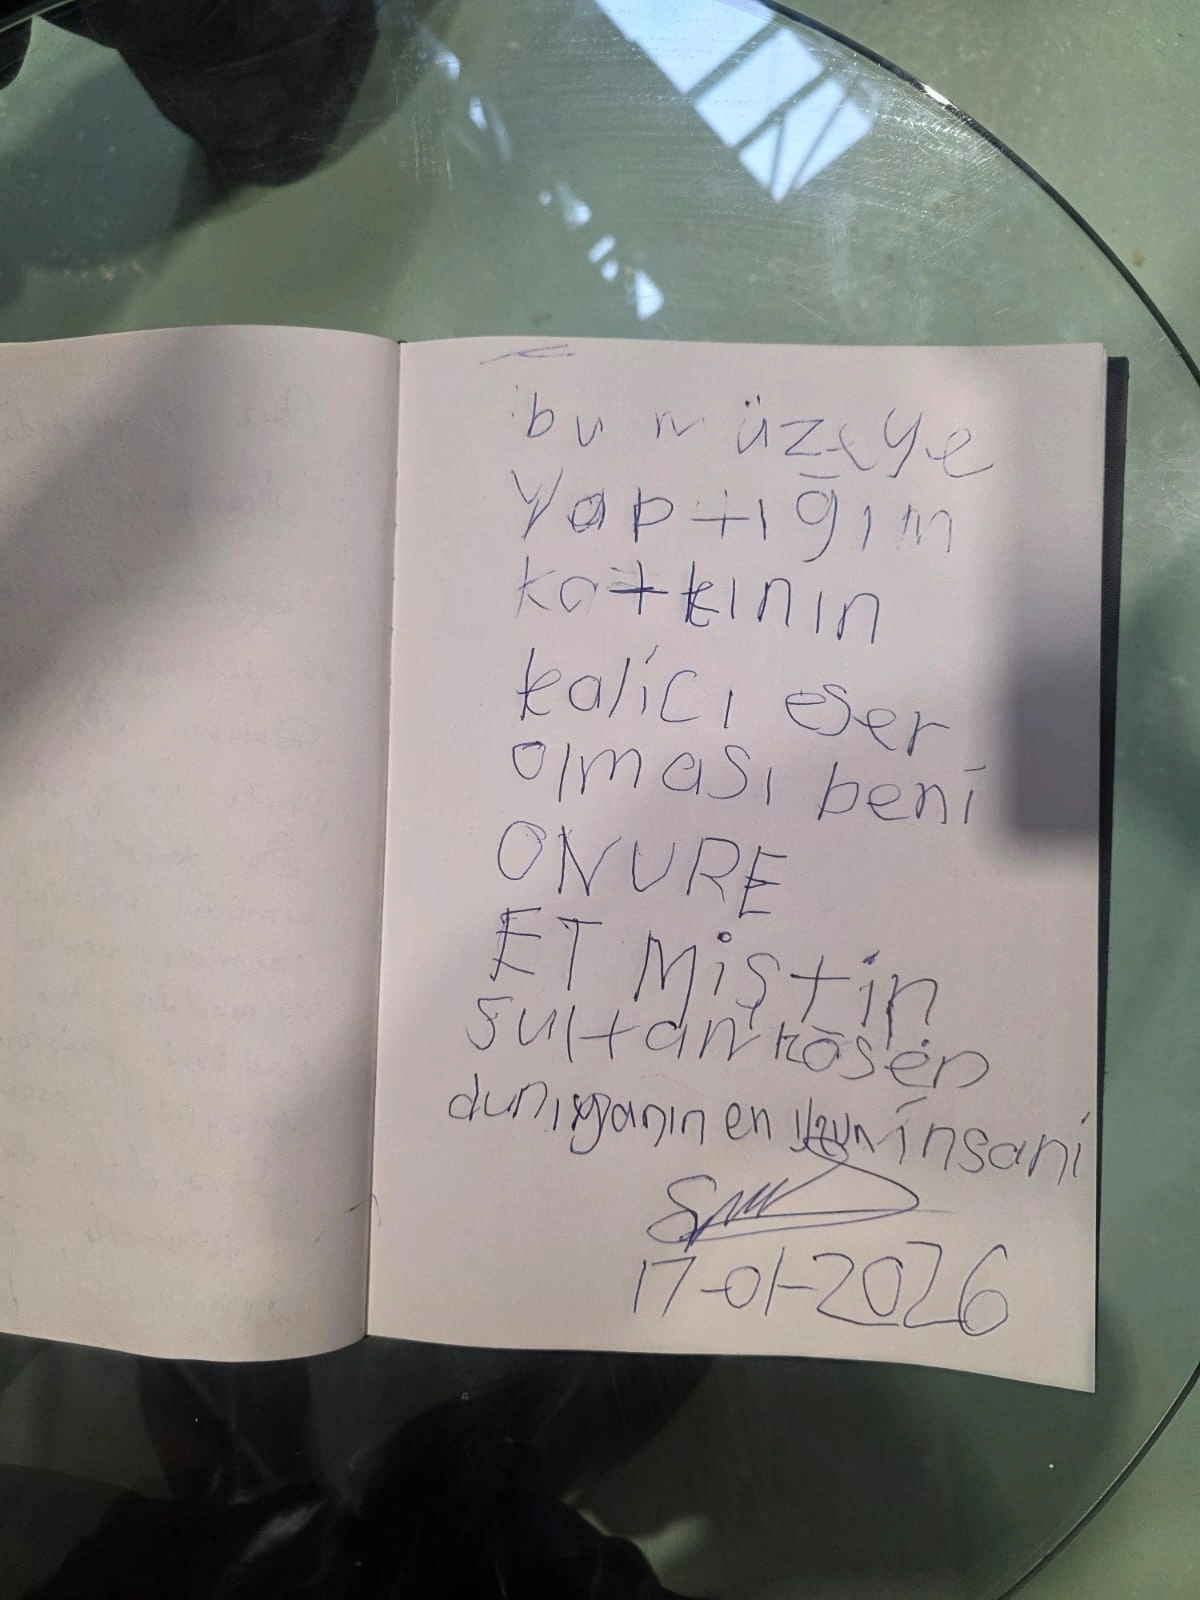 bu müzeye
Yaptığım
katkının
kalicı eser
olması beni
ONURE
ET Miştin
Sultan kösen
dunyanın en uzun insani
17-01-2026